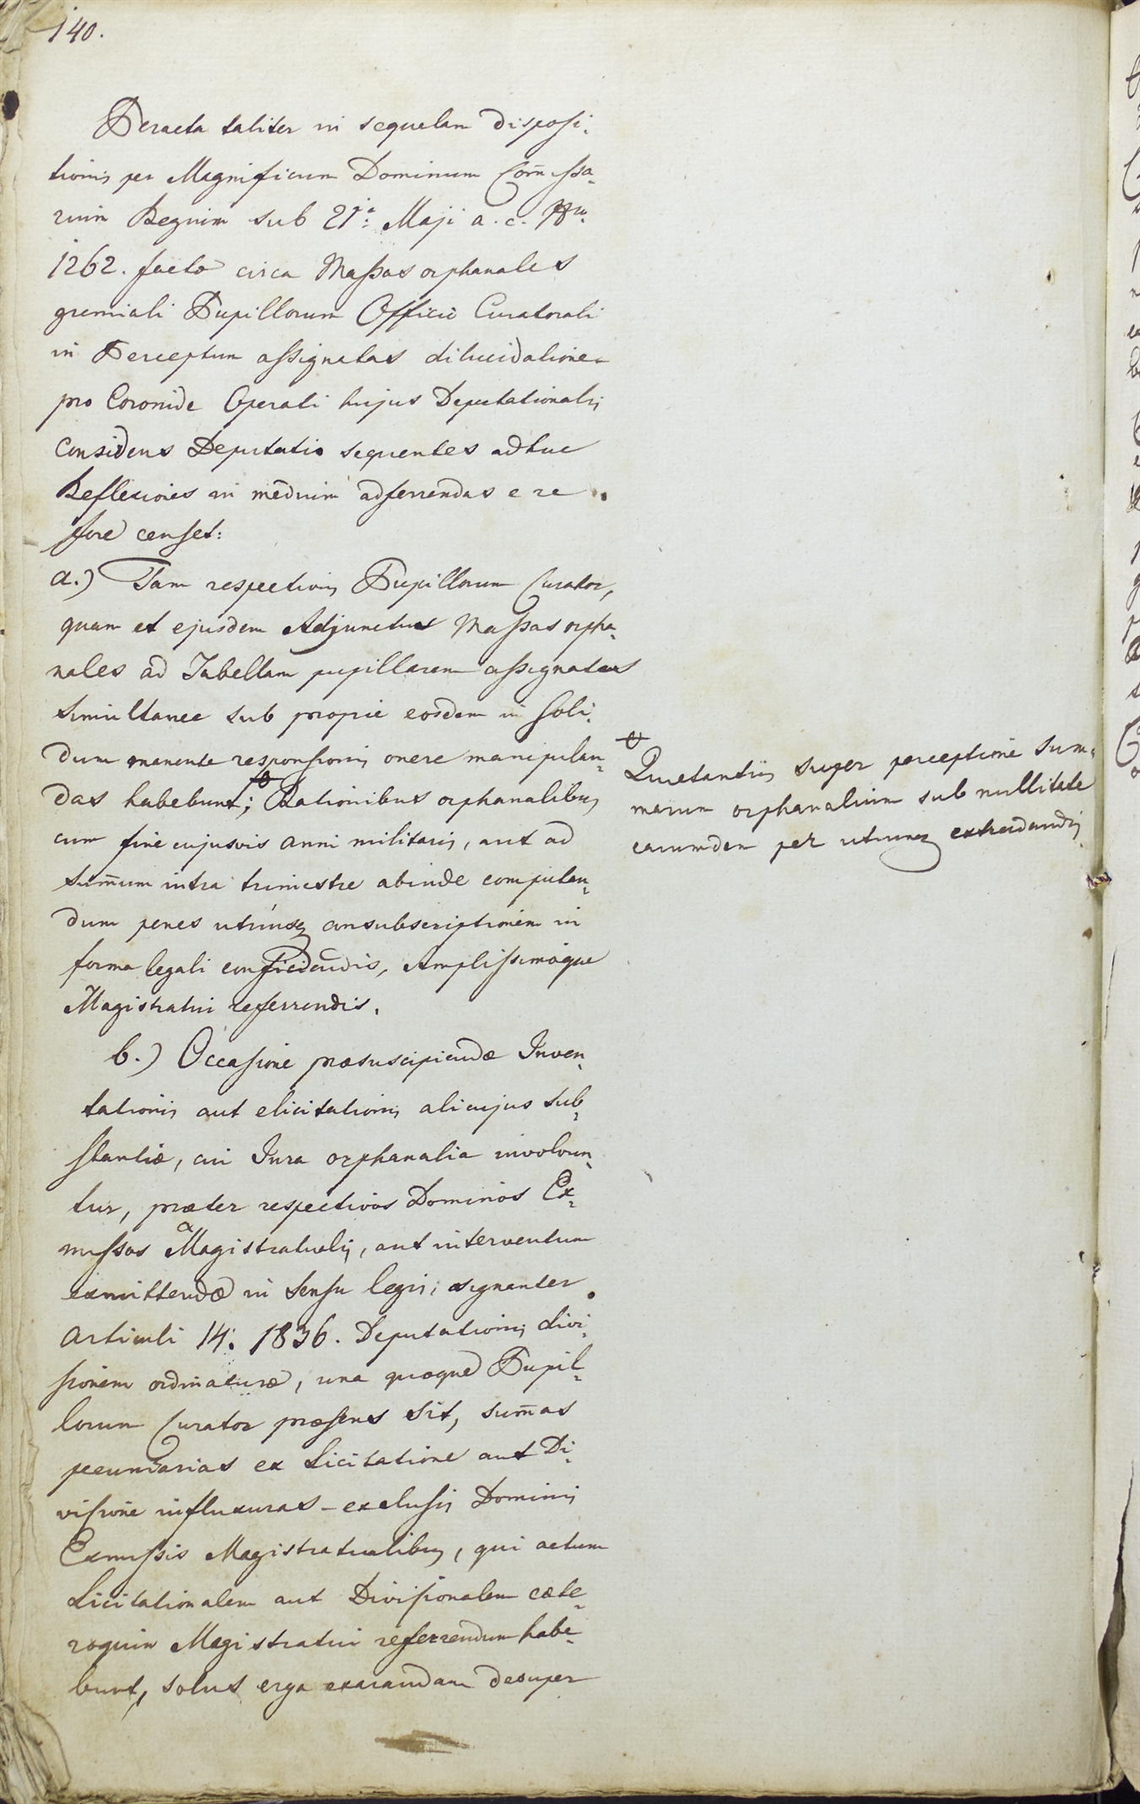 140.
Peracta taliter in sequelam disposi-
tionis per Magnificum Dominum Com̄issa-
rium Regium sub 21a Maji a. c. Nro
1262. facto circa Massas orphanales
gremiali Pupillorum Officio Curatorali
in Perceptum assignatas dilucidatione
pro Coronide Operati hujus Deputationalis
Considens Deputatio sequentes adhuc
Reflexiones in medium adferrendas e re
fore censet:
a.) Tam respectivus Pupillorum Curator,
quam et ejusdem Adjunctus Massas orpha-
nales ad Tabellam pupillarem assignatas
simultanee sub proprie eosdem in soli-
dum manente responsionis onere manipulan-
das habebunt; Rationibus orphanalibus
cum fine cujusvis anni militaris, aut ad
sum̄um intra trimestre abinde computan-
dum penes utriusq consubscriptionem in
forma legali conficiendis, Amplissimoque
Magistratui referrendis.
Quietantiis super perceptione sum-
marum orphanalium sub nullitate
earumdem per utrumq extradandis.
b.) Occasione praesuscipiendae Inven-
tationis aut elicitationis alicujus sub-
stantiae, cui Jura orphanalia involvun-
tur, praeter respectivos Dominos Ex-
missos Magistratuales, aut interventum
exmittendae in sensu legis, signanter
articuli 14. 1836. Deputationis divi-
sionem ordinaturae, una quoque Pupil-
lorum Curator praesens sit, sum̄as
pecuniarias ex Licitatione aut Di-
visione influxuras – exclusis Dominis
Exmissis Magistratualibus, qui actum
Licitationalem aut Divisionalem caete-
roquin Magistratui referrendum habe-
bunt, solus erga exarandam desuper